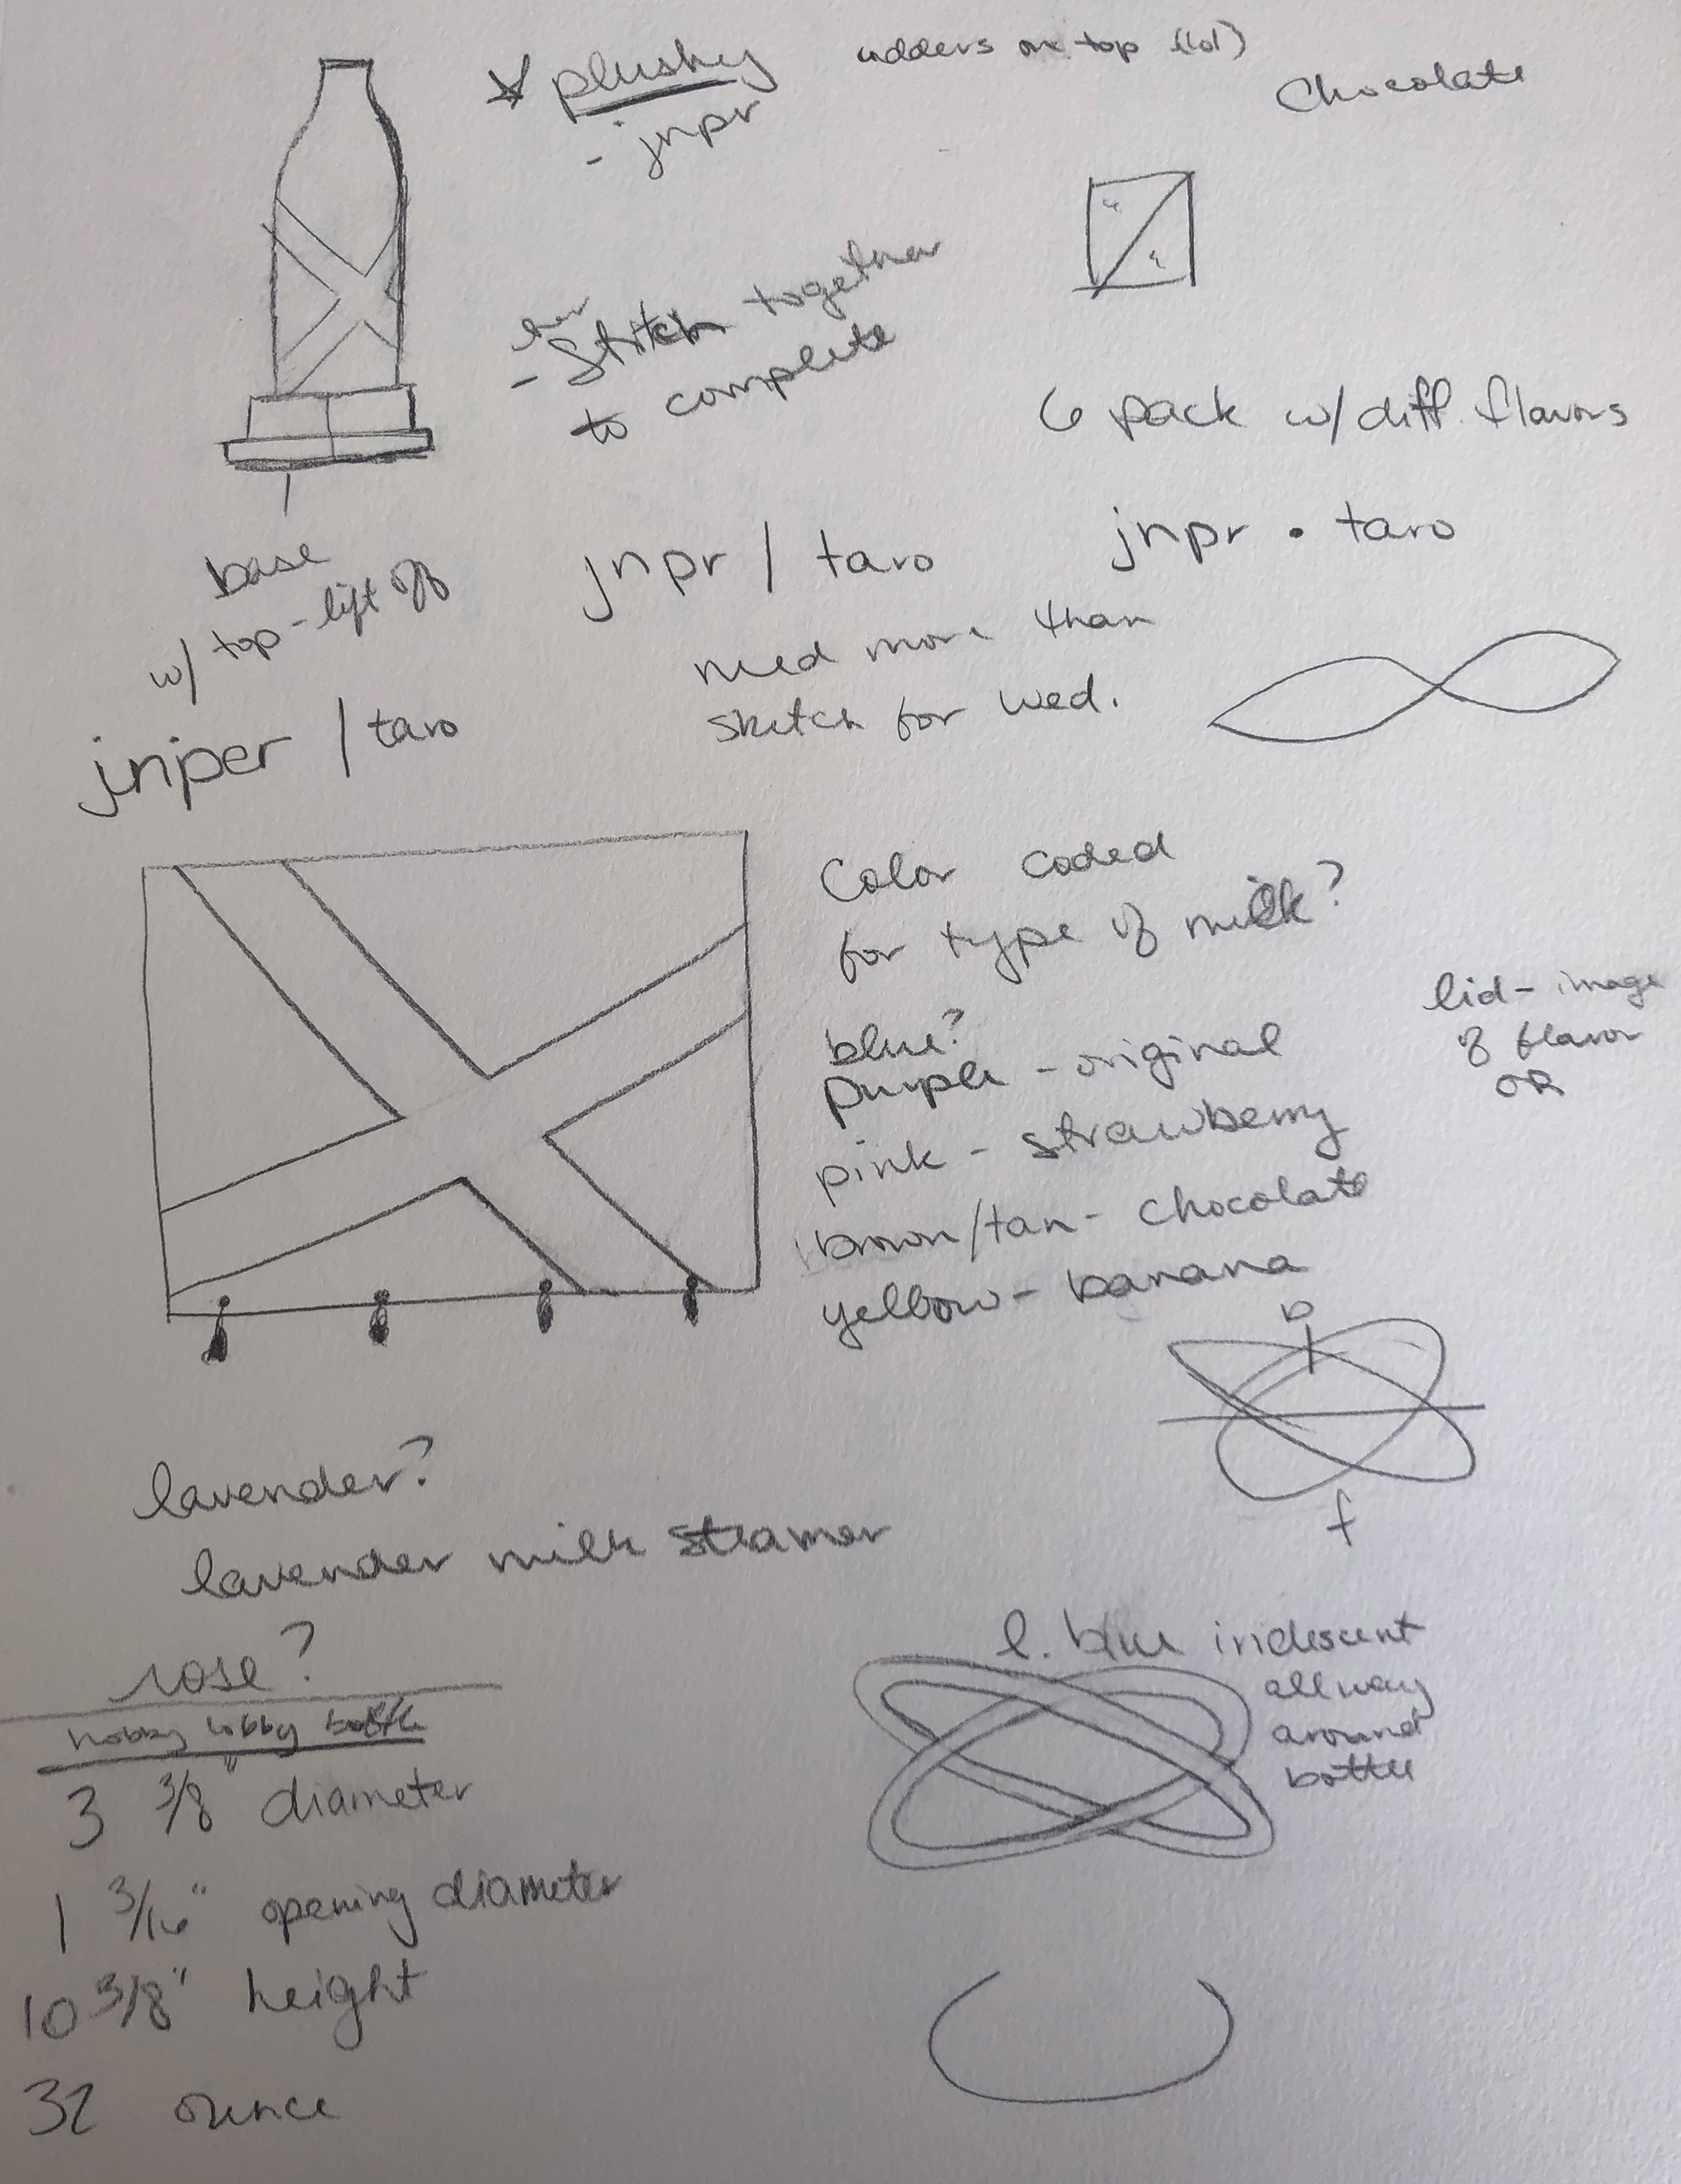 plushy
- jnpr
udders on top (lol)
Chocolate
- Stitch together
to complete
6 pack w/ diff. flavors
base
w/ top - lift off
jnpr / taro
jnpr • taro
need more than
sketch for wed.
jniper / taro
Color coded
for type of milk?
blue?
purple - original
pink - strawberry
brown/tan - chocolate
yellow - banana
lid - image
of flavor
OR
b
f
lavender?
lavender milk steamer
rose?
hobby lobby bottle
3 3/8" diameter
1 3/16" opening diameter
10 3/8" height
32 ounce
l. blue iridescent
all way
around
bottle